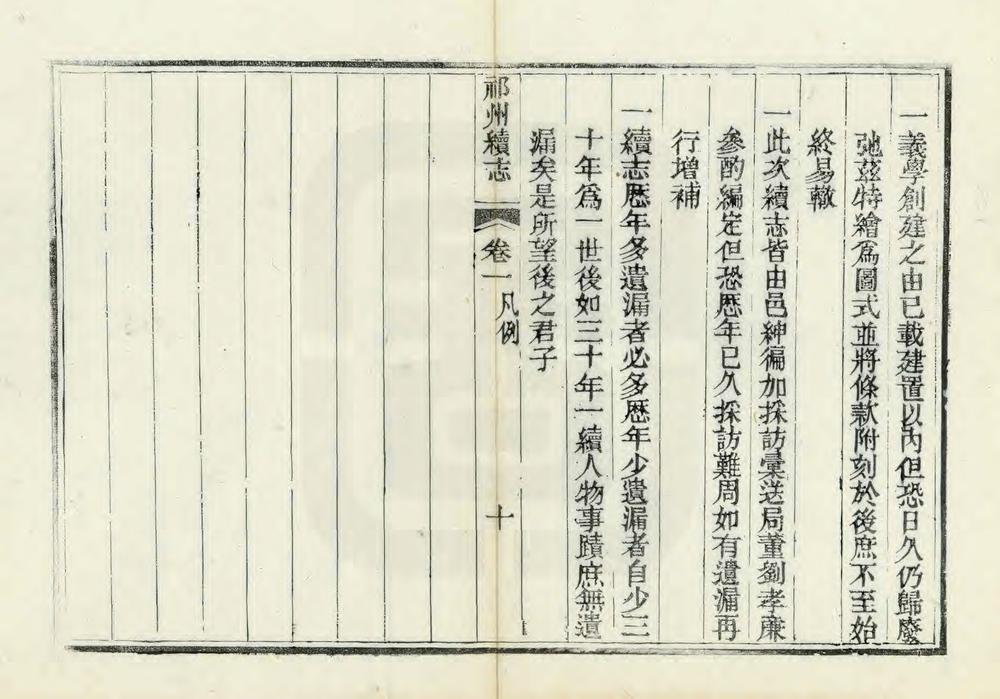 一義學創建之由已載建置以內但恐日久仍歸廢
弛茲特繪爲圖式並將條款附刻於後庶不至始
終易轍
一此次續志皆由邑紳徧加採訪彙送局董劉孝廉
參酌編定但恐歴年已久採訪難周如有遺漏再
行增補
一續志歴年多遺漏者必多歴年少遺漏者自少三
十年爲一世後如三十年一續人物事蹟庶無遺
漏矣是所望後之君子
祁州續志 卷一 凡例 十